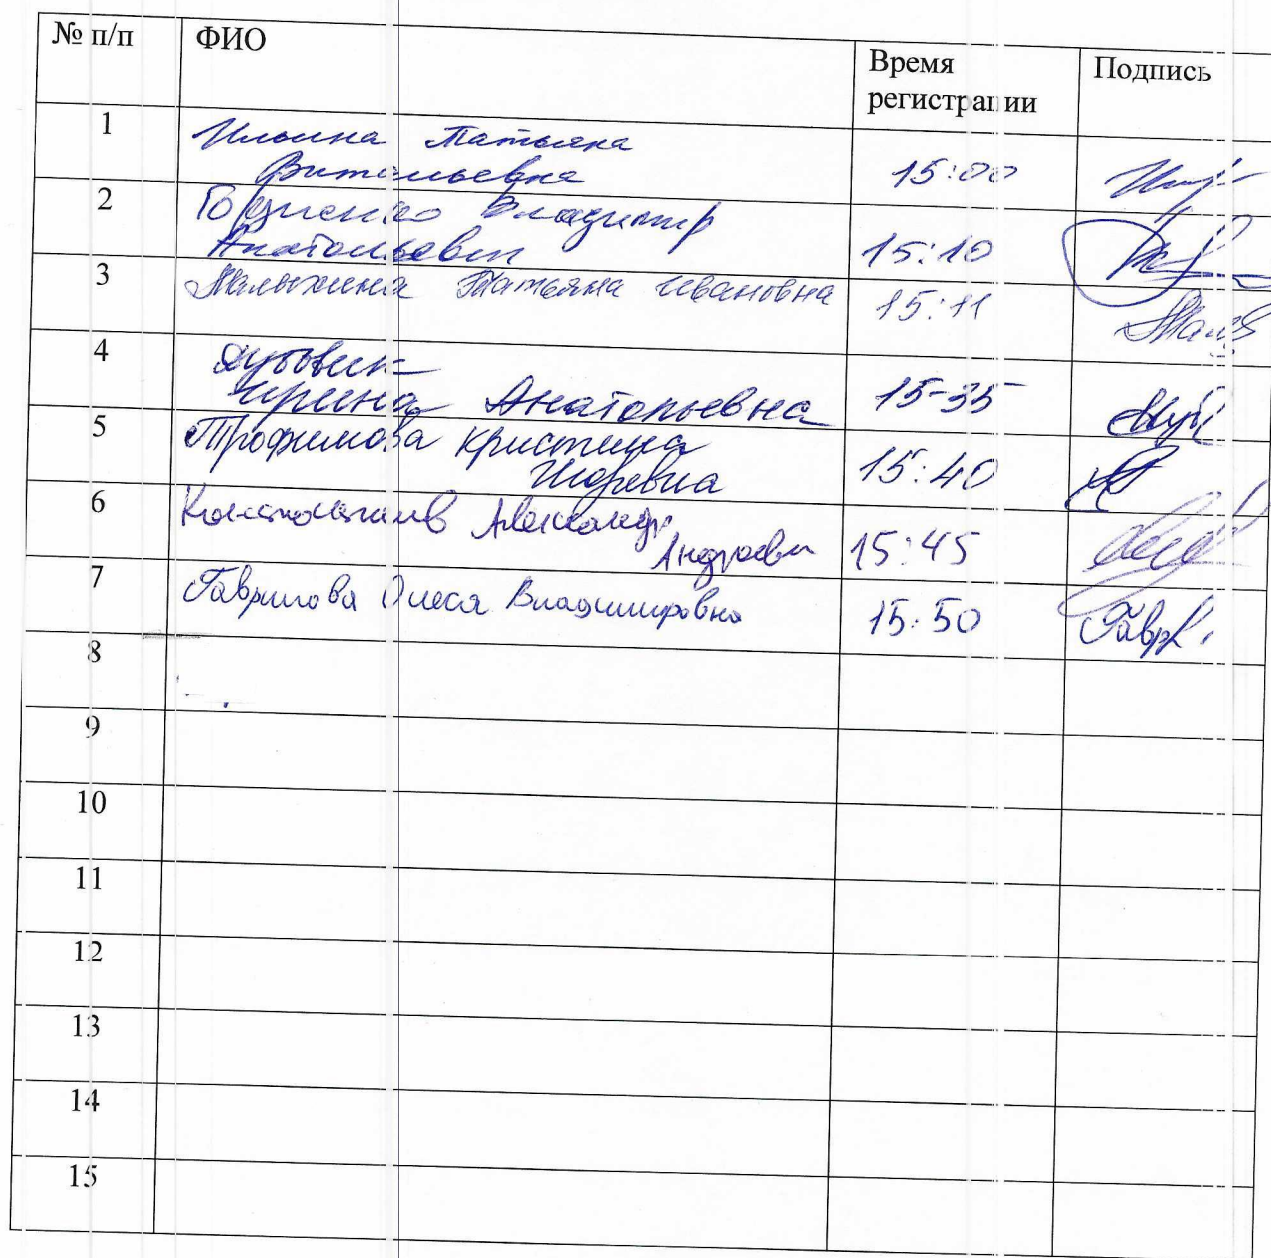 № п/п ФИО Время регистрации Подпись
1 Ильина Татьяна
Витальевна 15:00
2 Владимир
Анатольевич 15:10
3 Малыхина Татьяна Ивановна 15:11
4
Ирина Анатольевна 15-35
5 Трофимова Кристина
Игоревна 15:40
6 Константинов Александр
Андреевич 15:45
7 Гаврилова Олеся Владимировна 15:50
8
9
10
11
12
13
14
15